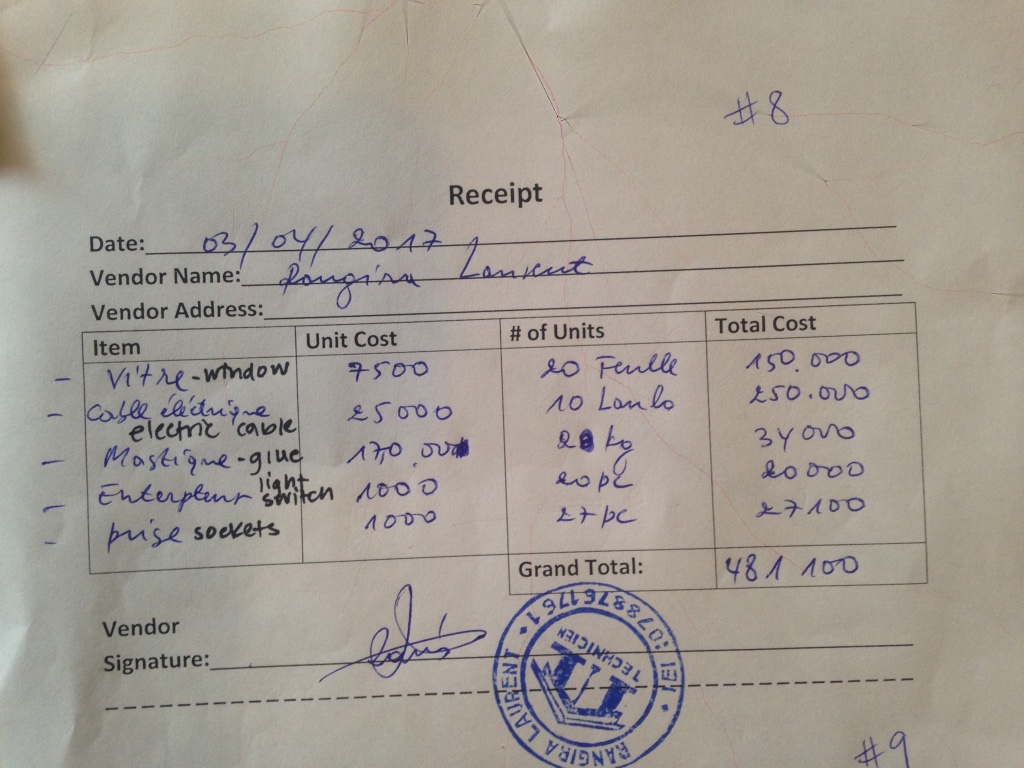 #8
Receipt
Date: 03/04/2017
Vendor Name: Rangira Laurent
Vendor Address:
Item Unit Cost # of Units Total Cost
- Vitre - window 7500 20 Feulle 150.000
- Cable éléctrique 25000 10 250.000
electric cable
- Mastique - glue 2 kg 34 000
- Enterpteur light switch 1000 20 pc 20 000
- prise sockets 1000 27 pc 27 100
Grand Total: 481 100
Vendor
Signature:
RANGIRA LAURENT * TEL: 0788761761 *
TECHNICIEN
#9